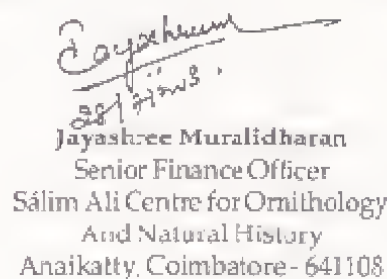 Jayashree
Jayashree Muralidharan
Senior Finance Officer
Sálim Ali Centre for Ornithology
And Natural History
Anaikatty, Coimbatore - 641108